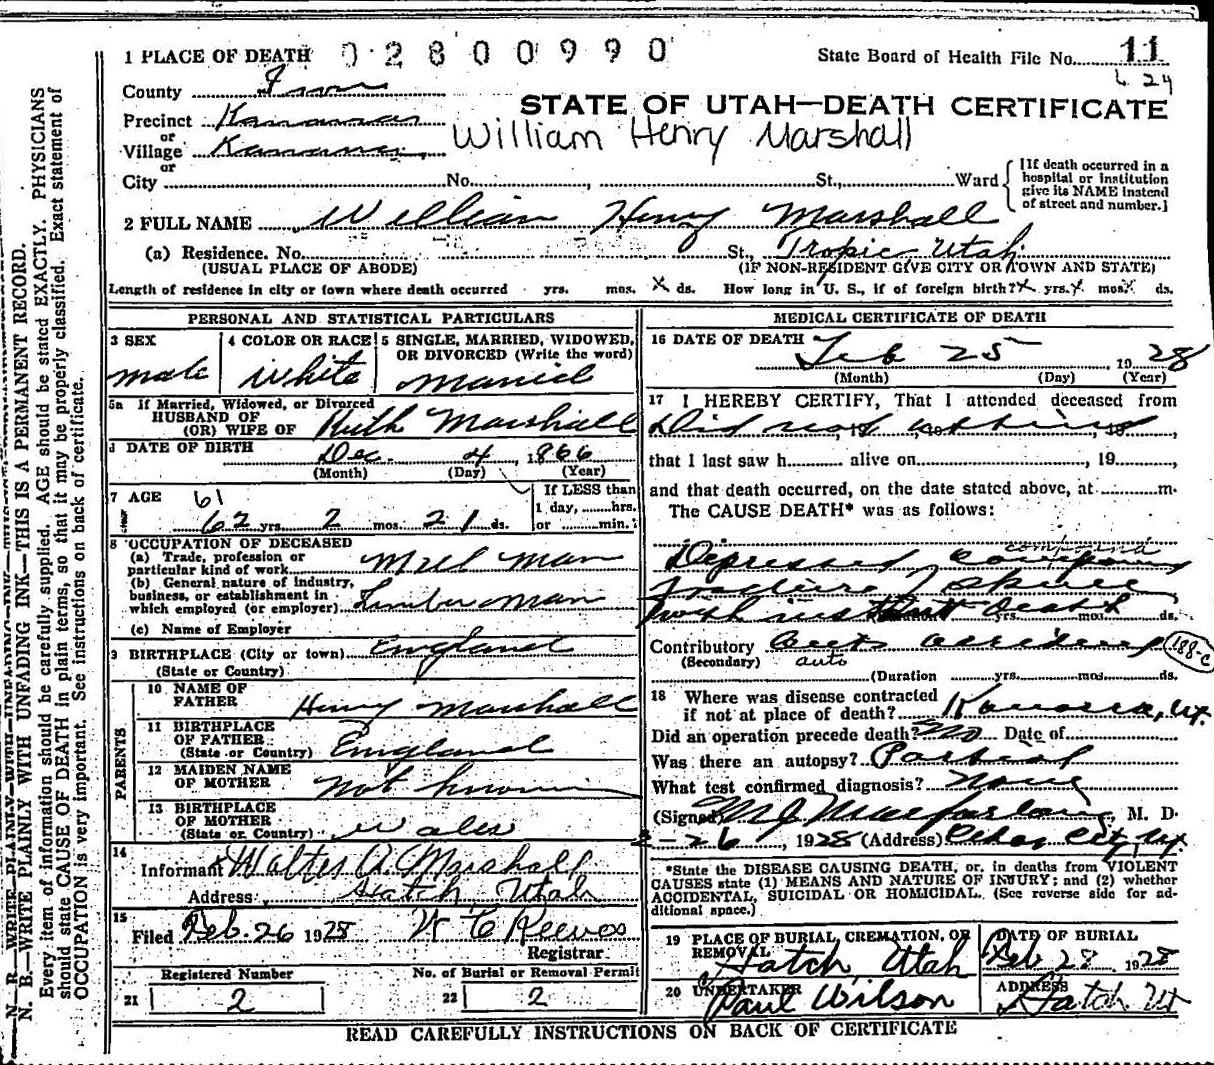 1 PLACE OF DEATH 02800990 State Board of Health File No. 11
County Iron L 24
STATE OF UTAH—DEATH CERTIFICATE
Precinct Kanarra
or
Village Kanarra
William Henry Marshall
or
City No. , St., Ward [If death occurred in a hospital or institution give its NAME instead of street and number.]
2 FULL NAME William Henry Marshall
(a) Residence. No. St., Tropic, Utah
(USUAL PLACE OF ABODE) (IF NON-RESIDENT GIVE CITY OR TOWN AND STATE)
Length of residence in city or town where death occurred yrs. mos. X ds. How long in U. S., if of foreign birth? X yrs. X mos. X ds.
PERSONAL AND STATISTICAL PARTICULARS
3 SEX 4 COLOR OR RACE 5 SINGLE, MARRIED, WIDOWED, OR DIVORCED (Write the word)
male White Married
5a If Married, Widowed, or Divorced
HUSBAND OF
(OR) WIFE OF Ruth Marshall
DATE OF BIRTH Dec. 4, 1866
(Month) (Day) (Year)
7 AGE 61
62 yrs. 2 mos. 21 ds.
If LESS than
1 day, hrs.
or min.
8 OCCUPATION OF DECEASED
(a) Trade, profession or
particular kind of work Mill Man
(b) General nature of industry,
business, or establishment in
which employed (or employer) Lumber Man
(c) Name of Employer
9 BIRTHPLACE (City or town) England
(State or Country)
PARENTS
10 NAME OF
FATHER Henry Marshall
11 BIRTHPLACE
OF FATHER
(State or Country) England
12 MAIDEN NAME
OF MOTHER Not known
13 BIRTHPLACE
OF MOTHER
(State or Country) Wales
14
Informant x Walter A. Marshall
Address Hatch, Utah
15
Filed Feb. 26 1928 W C Reeves
Registrar
Registered Number No. of Burial or Removal Permit
21 2 22 2
MEDICAL CERTIFICATE OF DEATH
16 DATE OF DEATH Feb 25 1928
(Month) (Day) (Year)
17 I HEREBY CERTIFY, That I attended deceased from
Did not attend
that I last saw h alive on , 19 ,
and that death occurred, on the date stated above, at m.
The CAUSE DEATH* was as follows:
compound
Depressed compound
fracture of skull
with instant death
yrs. mos. ds.
Contributory Auto accident 188-c
(Secondary) auto
(Duration yrs. mos. ds.
18 Where was disease contracted
if not at place of death? Kanarra, Ut.
Did an operation precede death? No Date of
Was there an autopsy? Partial
What test confirmed diagnosis? None
(Signed) M J Macfarlane, M. D.
2-26, 1928 (Address) Cedar City, Ut
*State the DISEASE CAUSING DEATH, or, in deaths from VIOLENT
CAUSES state (1) MEANS AND NATURE OF INJURY; and (2) whether
ACCIDENTAL, SUICIDAL OR HOMICIDAL. (See reverse side for ad-
ditional space.)
19 PLACE OF BURIAL, CREMATION, OR REMOVAL DATE OF BURIAL
Hatch Utah Feb 28 1928
20 UNDERTAKER ADDRESS
Paul Wilson Hatch Ut
READ CAREFULLY INSTRUCTIONS ON BACK OF CERTIFICATE
N. B.—WRITE PLAINLY WITH UNFADING INK—THIS IS A PERMANENT RECORD.
Every item of information should be carefully supplied. AGE should be stated EXACTLY. PHYSICIANS
should state CAUSE OF DEATH in plain terms, so that it may be properly classified. Exact statement of
OCCUPATION is very important. See instructions on back of certificate.